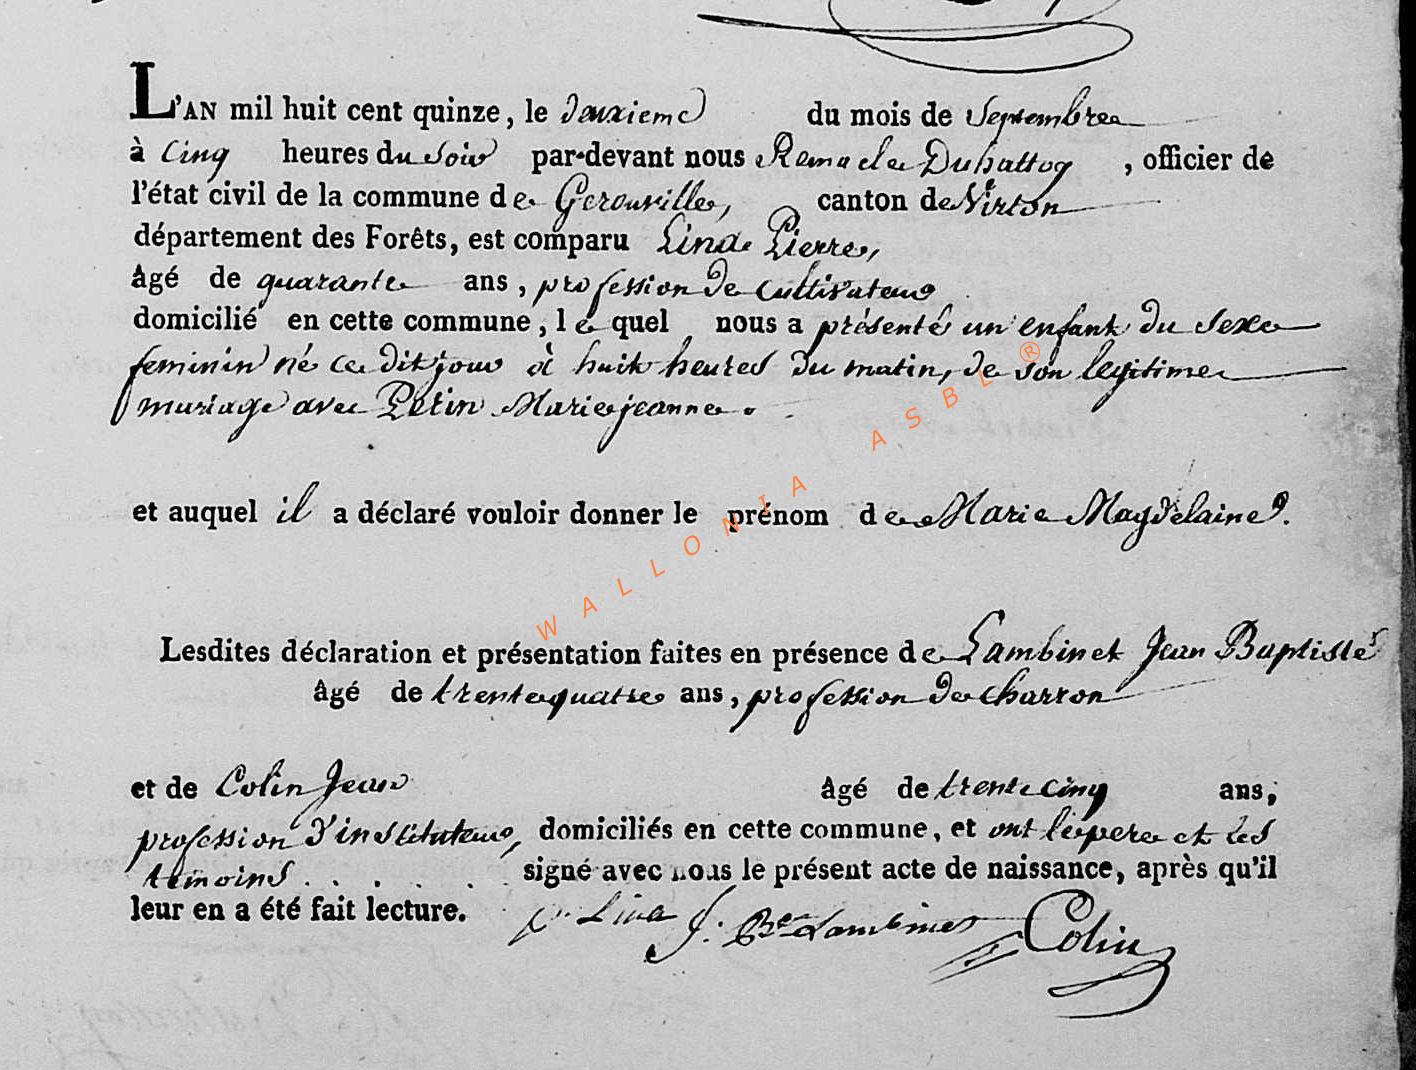 L'AN mil huit cent quinze, le deuxieme du mois de Septembre
à Cinq heures du Soir par-devant nous Remacle Duhattoy, officier de
l'état civil de la commune de Gerouville, canton de Virton
département des Forêts, est comparu Line Pierre,
âgé de quarante ans, profession de cultivateur
domicilié en cette commune, lequel nous a présenté un enfant du Sexe
feminin né ce dit jour à huit heures du matin, de son legitime
mariage avec Perin Marie jeanne.
et auquel il a déclaré vouloir donner le prénom de Marie Magdelaine.
Lesdites déclaration et présentation faites en présence de Lambinet Jean Baptiste
âgé de trente quatre ans, profession de charron
et de Colin Jean âgé de trente cinq ans,
profession d'instituteur, domiciliés en cette commune, et ont le pere et les
temoins . . . . . signé avec nous le présent acte de naissance, après qu'il
leur en a été fait lecture. p. Line J. Bte Lambinet J Colin
WALLONIA ASBL ®